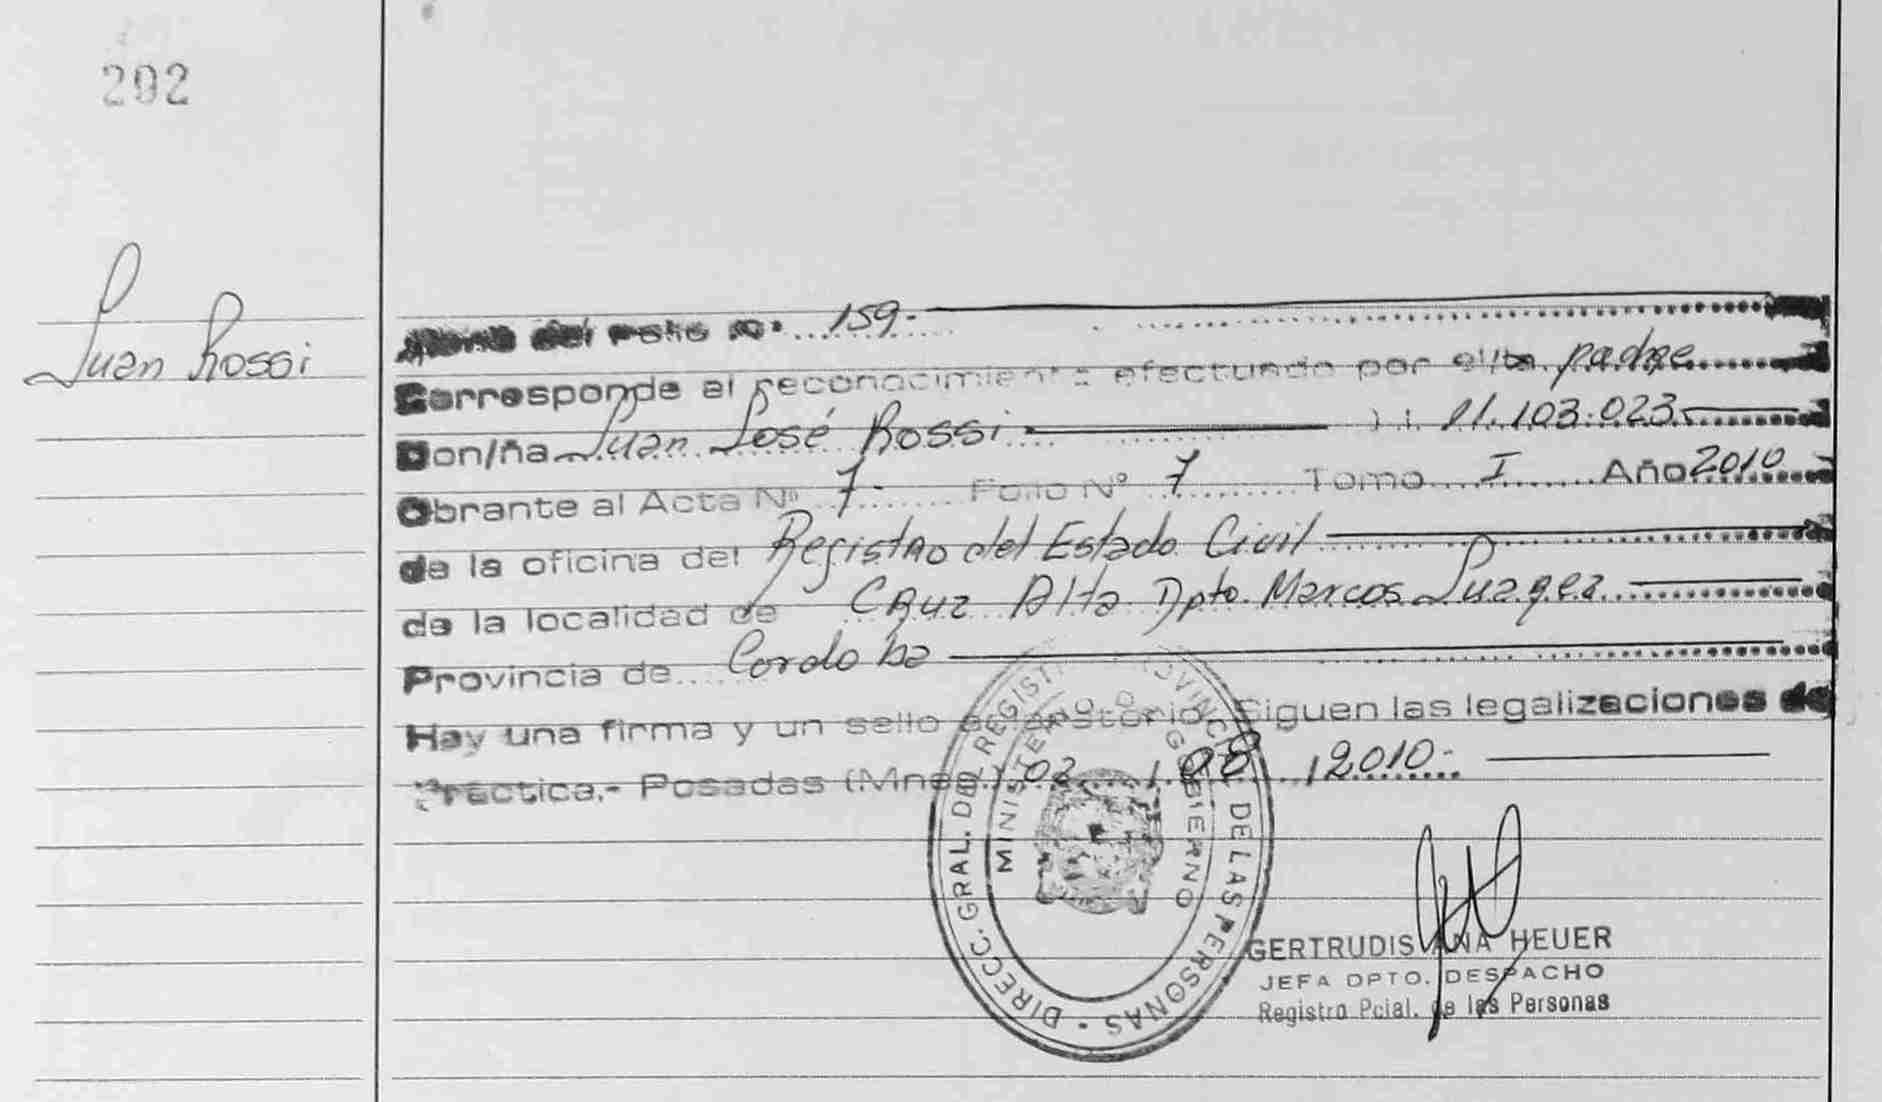 202
Juan Rossi
Viene del Folio Nº 159.-
Corresponde al reconocimiento efectuado por el/la padre
Don/ña Juan José Rossi.- 11.103.023
Obrante al Acta Nº 7- Folio Nº 7 Tomo I Año 2010
de la oficina del Registro del Estado Civil
de la localidad de Cruz Alta Dpto. Marcos Juarez
Provincia de Cordoba
Hay una firma y un sello aclaratorio. Siguen las legalizaciones de
Práctica.- Posadas (Mnes.) 02 / 08 / 2010.-
DIRECC. GRAL. DEL REGISTRO PROVINCIAL DE LAS PERSONAS
MINISTERIO DE GOBIERNO
GERTRUDIS ANA HEUER
JEFA DPTO. DESPACHO
Registro Pcial. de las Personas